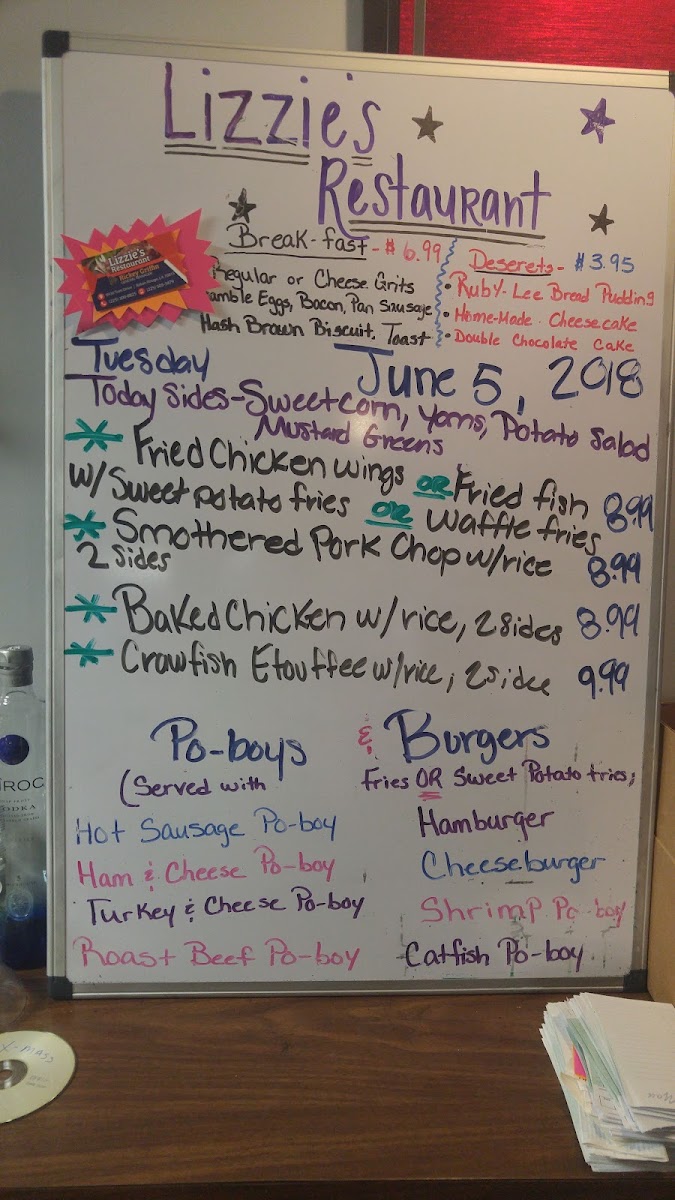 Lizzie's
Restaurant
Lizzie's
Restaurant
Rickey Griffin
Break-fast - $6.99
Regular or Cheese Grits
amble Eggs, Bacon, Pan Sausage
Hash Brown Biscuit, Toast
Deserets - $3.95
• Ruby-Lee Bread Pudding
• Home-Made Cheesecake
• Double Chocolate Cake
Tuesday June 5, 2018
Today Sides - Sweetcorn, Yams, Potato Salad
Mustard Greens
* Fried Chicken Wings OR Fried fish
w/ Sweet potato fries OR Waffle fries 8.99
* Smothered Pork Chop w/rice 8.99
2 sides
* Baked Chicken w/rice, 2 sides 8.99
* Crawfish Etouffee w/rice, 2 sides 9.99
Po-boys & Burgers
(Served with fries OR Sweet Potato fries;
Hot Sausage Po-boy
Ham & Cheese Po-boy
Turkey & Cheese Po-boy
Roast Beef Po-boy
Hamburger
Cheeseburger
Shrimp Po-boy
Catfish Po-boy
ROC
ODKA
X-MASS